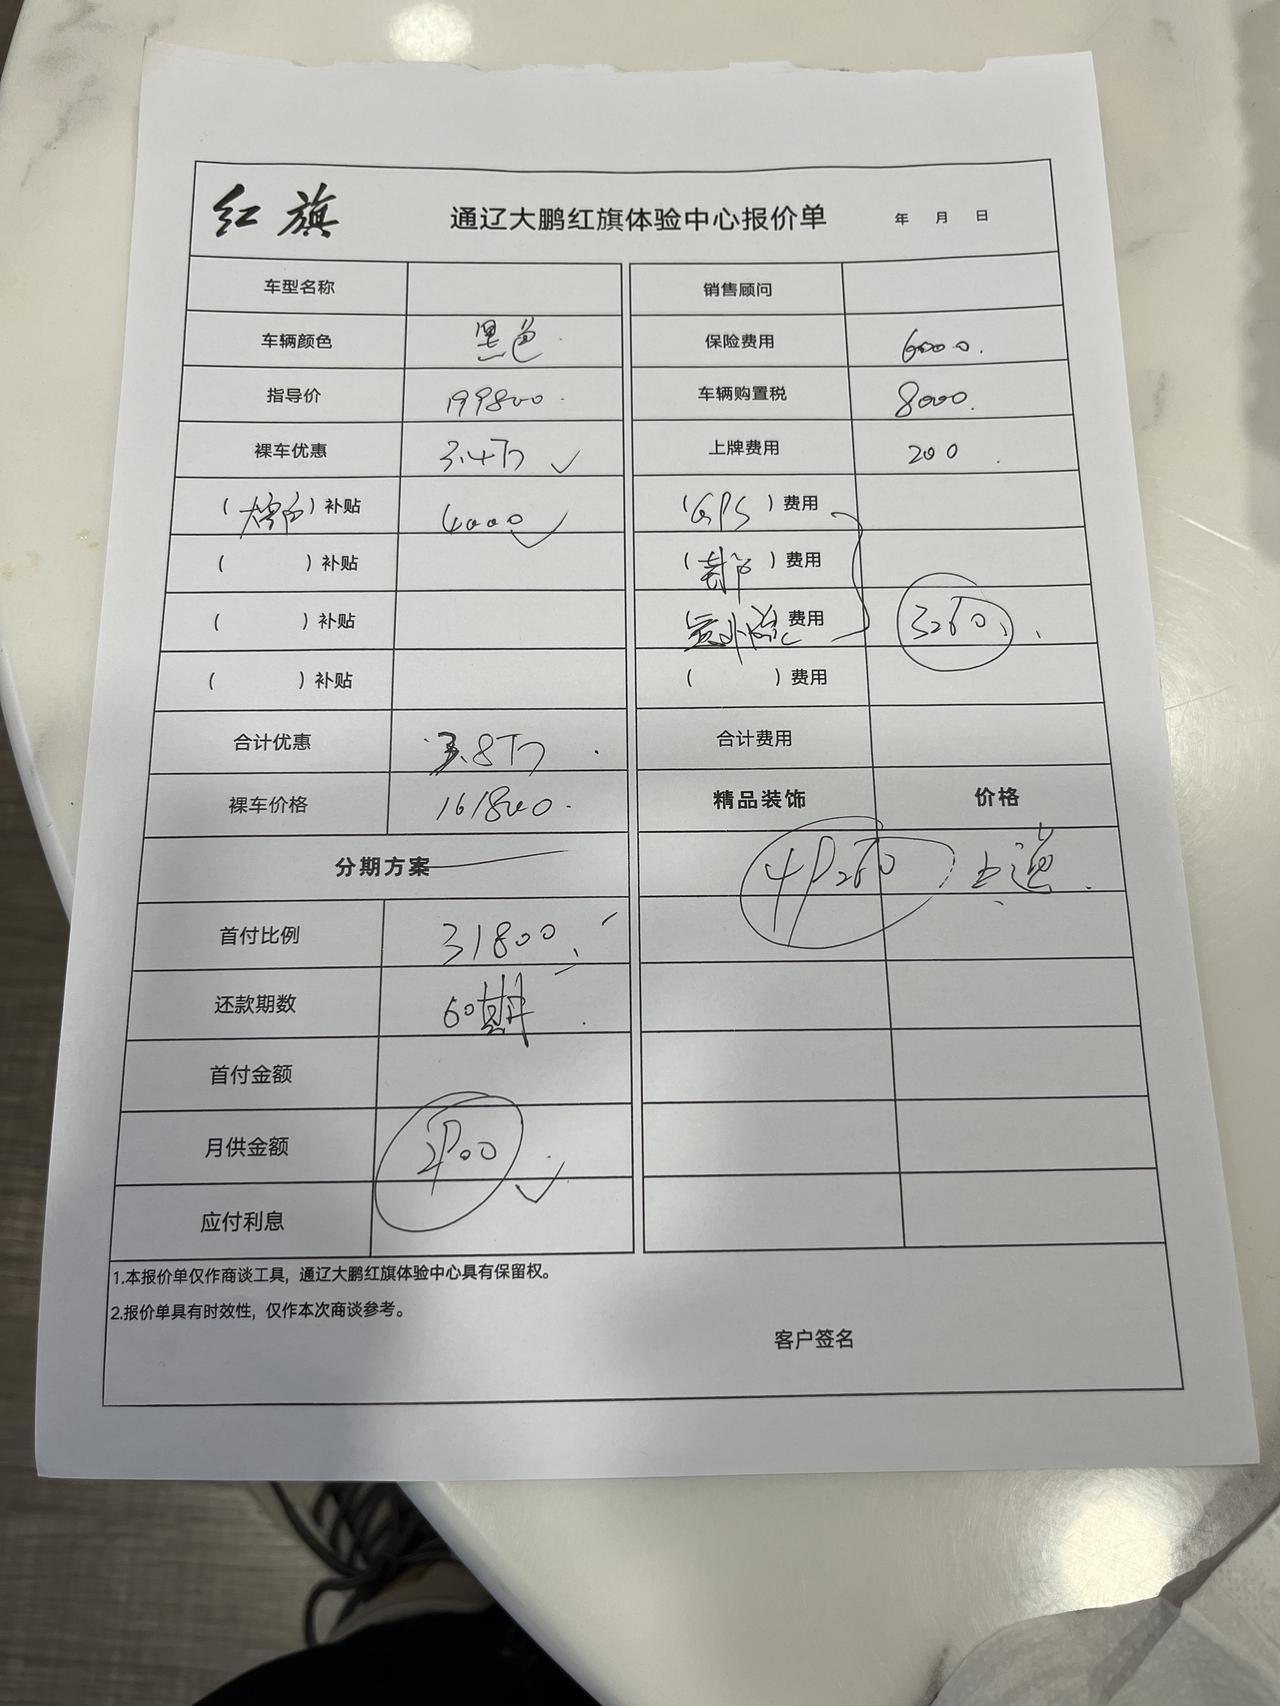 红旗
通辽大鹏红旗体验中心报价单 年 月 日
车型名称 销售顾问
车辆颜色 黑色 保险费用 6000.
指导价 199800. 车辆购置税 8000.
裸车优惠 3.4万 上牌费用 200.
( ) 补贴 4000 (GPS) 费用
( ) 补贴 ( ) 费用
( ) 补贴 费用
( ) 补贴 ( ) 费用
合计优惠 3.8万. 合计费用
裸车价格 161800. 精品装饰 价格
分期方案
首付比例 31800.
还款期数 60期.
首付金额
月供金额
应付利息
1.本报价单仅作商谈工具，通辽大鹏红旗体验中心具有保留权。
2.报价单具有时效性，仅作本次商谈参考。
客户签名